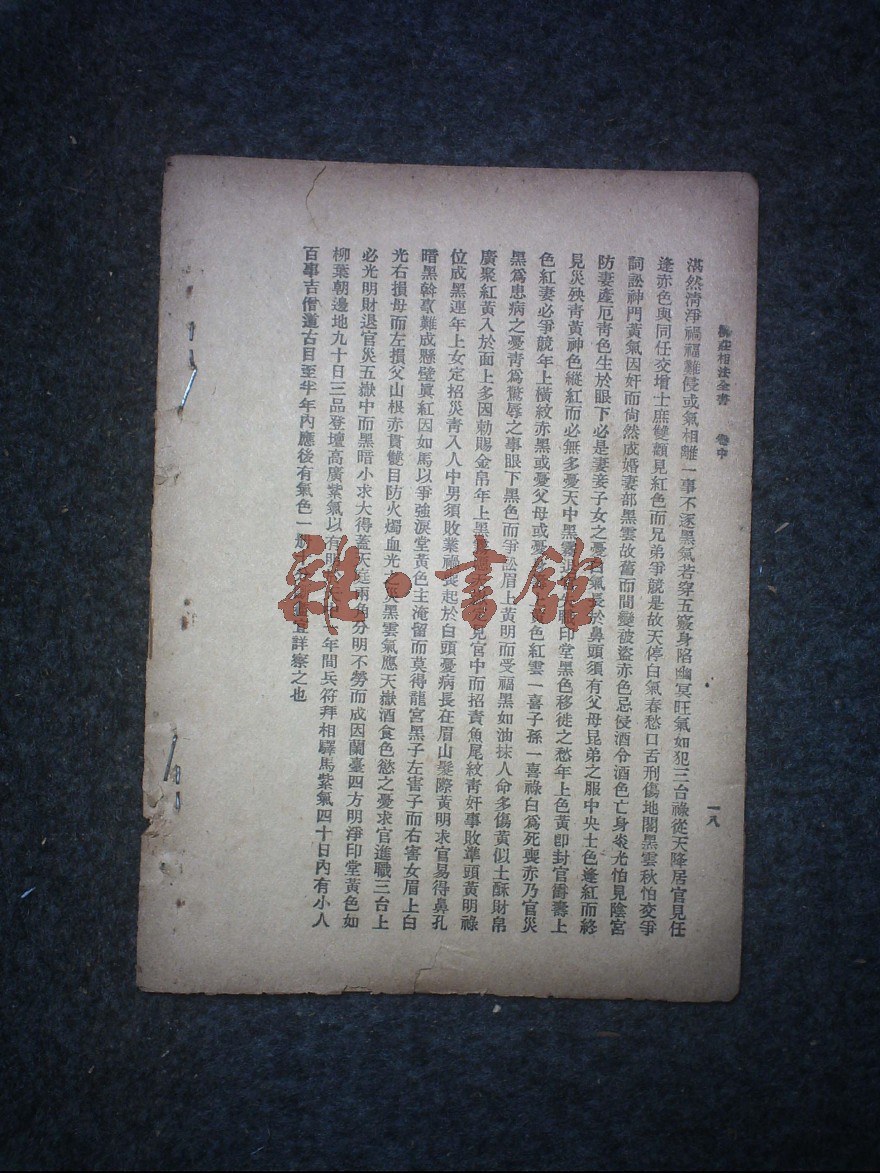 相法全書 卷中
一八
湛然清淨禍福難侵或氣相離一事不逐黑氣若穿五竅身陷幽冥旺氣如犯三台祿從天降居官見任
逢赤色與同任交增士庶雙顴見紅色而兄弟爭競是故天停白氣春愁口舌刑傷地閣黑雲秋怕交爭
詞訟神門黃氣因奸而尙然成婚妻部黑雲故舊而間變被盜赤色忌侵酒令酒色亡身炎光怕見陰宮
防妻產厄靑色生於眼下必是妻妾子女之憂白氣長於鼻頭須有父母昆弟之服中央土色逢紅而終
見災殃靑黃神色縱紅而必無多憂天中黑霧印堂黑色移徙之愁年上色黃卽封官爵壽上
色紅妻必爭競年上橫紋赤黑或憂父母或憂色紅雲一喜子孫一喜祿白爲死喪赤乃官災
黑爲患病之憂靑爲驚辱之事眼下黑色而爭訟眉上黃明而受福黑如油抹人命多傷黃似土酥財帛
廣聚紅黃入於面上多因勅賜金帛年上黑見官中而招責魚尾紋靑奸事敗準頭黃明祿
位成黑連年上女定招災靑入人中男須敗業起於白頭憂病長在眉山髮際黃明求官易得鼻孔
暗黑幹事難成懸壁眞紅因如馬以爭強淚堂黃色主淹留而莫得龍宮黑子左害子而右害女眉上白
光右損母而左損父山根赤貫雙目防火燭血光之黑雲氣應天嶽酒食色慾之憂求官進職三台上
必光明財退官災五嶽中而黑暗小求大得蓋天庭兩角分明不勞而成因蘭臺四方明淨印堂黃色如
柳葉朝邊地九十日三品登壇高廣紫氣以有年間兵符拜相驛馬紫氣四十日內有小人
百事吉僧道古目至半年內應後有氣色一宜詳察之也
雜·書館